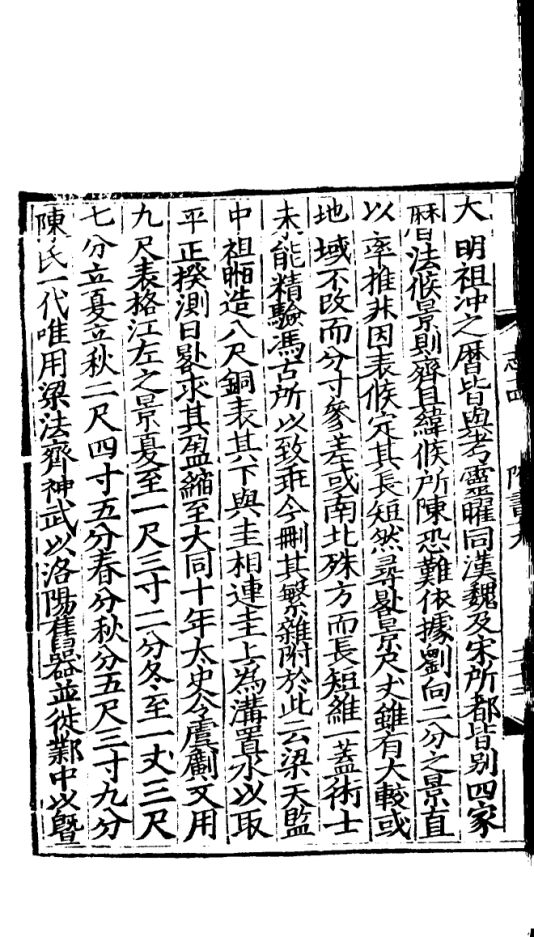 大明祖沖之曆皆與考靈曜同漢魏及宋所都皆别四家
曆法候景則齊且緯候所陳恐難依據劉向二分之景直
以率推非因表候定其長短然尋晷景尺丈雖有大較或
地域不改而分寸參差或南北殊方而長短維一蓋術士
未能精驗馮古所以致乖今刪其繁雜附於此云梁天監
中祖暅造八尺銅表其下與圭相連圭上為溝置水以取
平正揆測日晷求其盈縮至大同十年太史令虞𠠎又用
九尺表格江左之景夏至一尺三寸二分冬至一丈三尺
七分立夏立秋二尺四寸五分春分秋分五尺三寸九分
陳氏一代唯用梁法齊神武以洛陽舊器並徙鄴中以暨